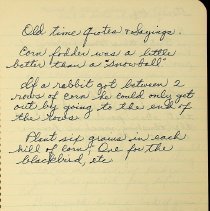 Old time quotes & Sayings.
Corn fodder was a little
better than a "snowball"
If a rabbit got between 2
rows of corn he could only get
out by going to the end of
the rows
Plant six grains in each
hill of corn; One for the
blackbird, etc